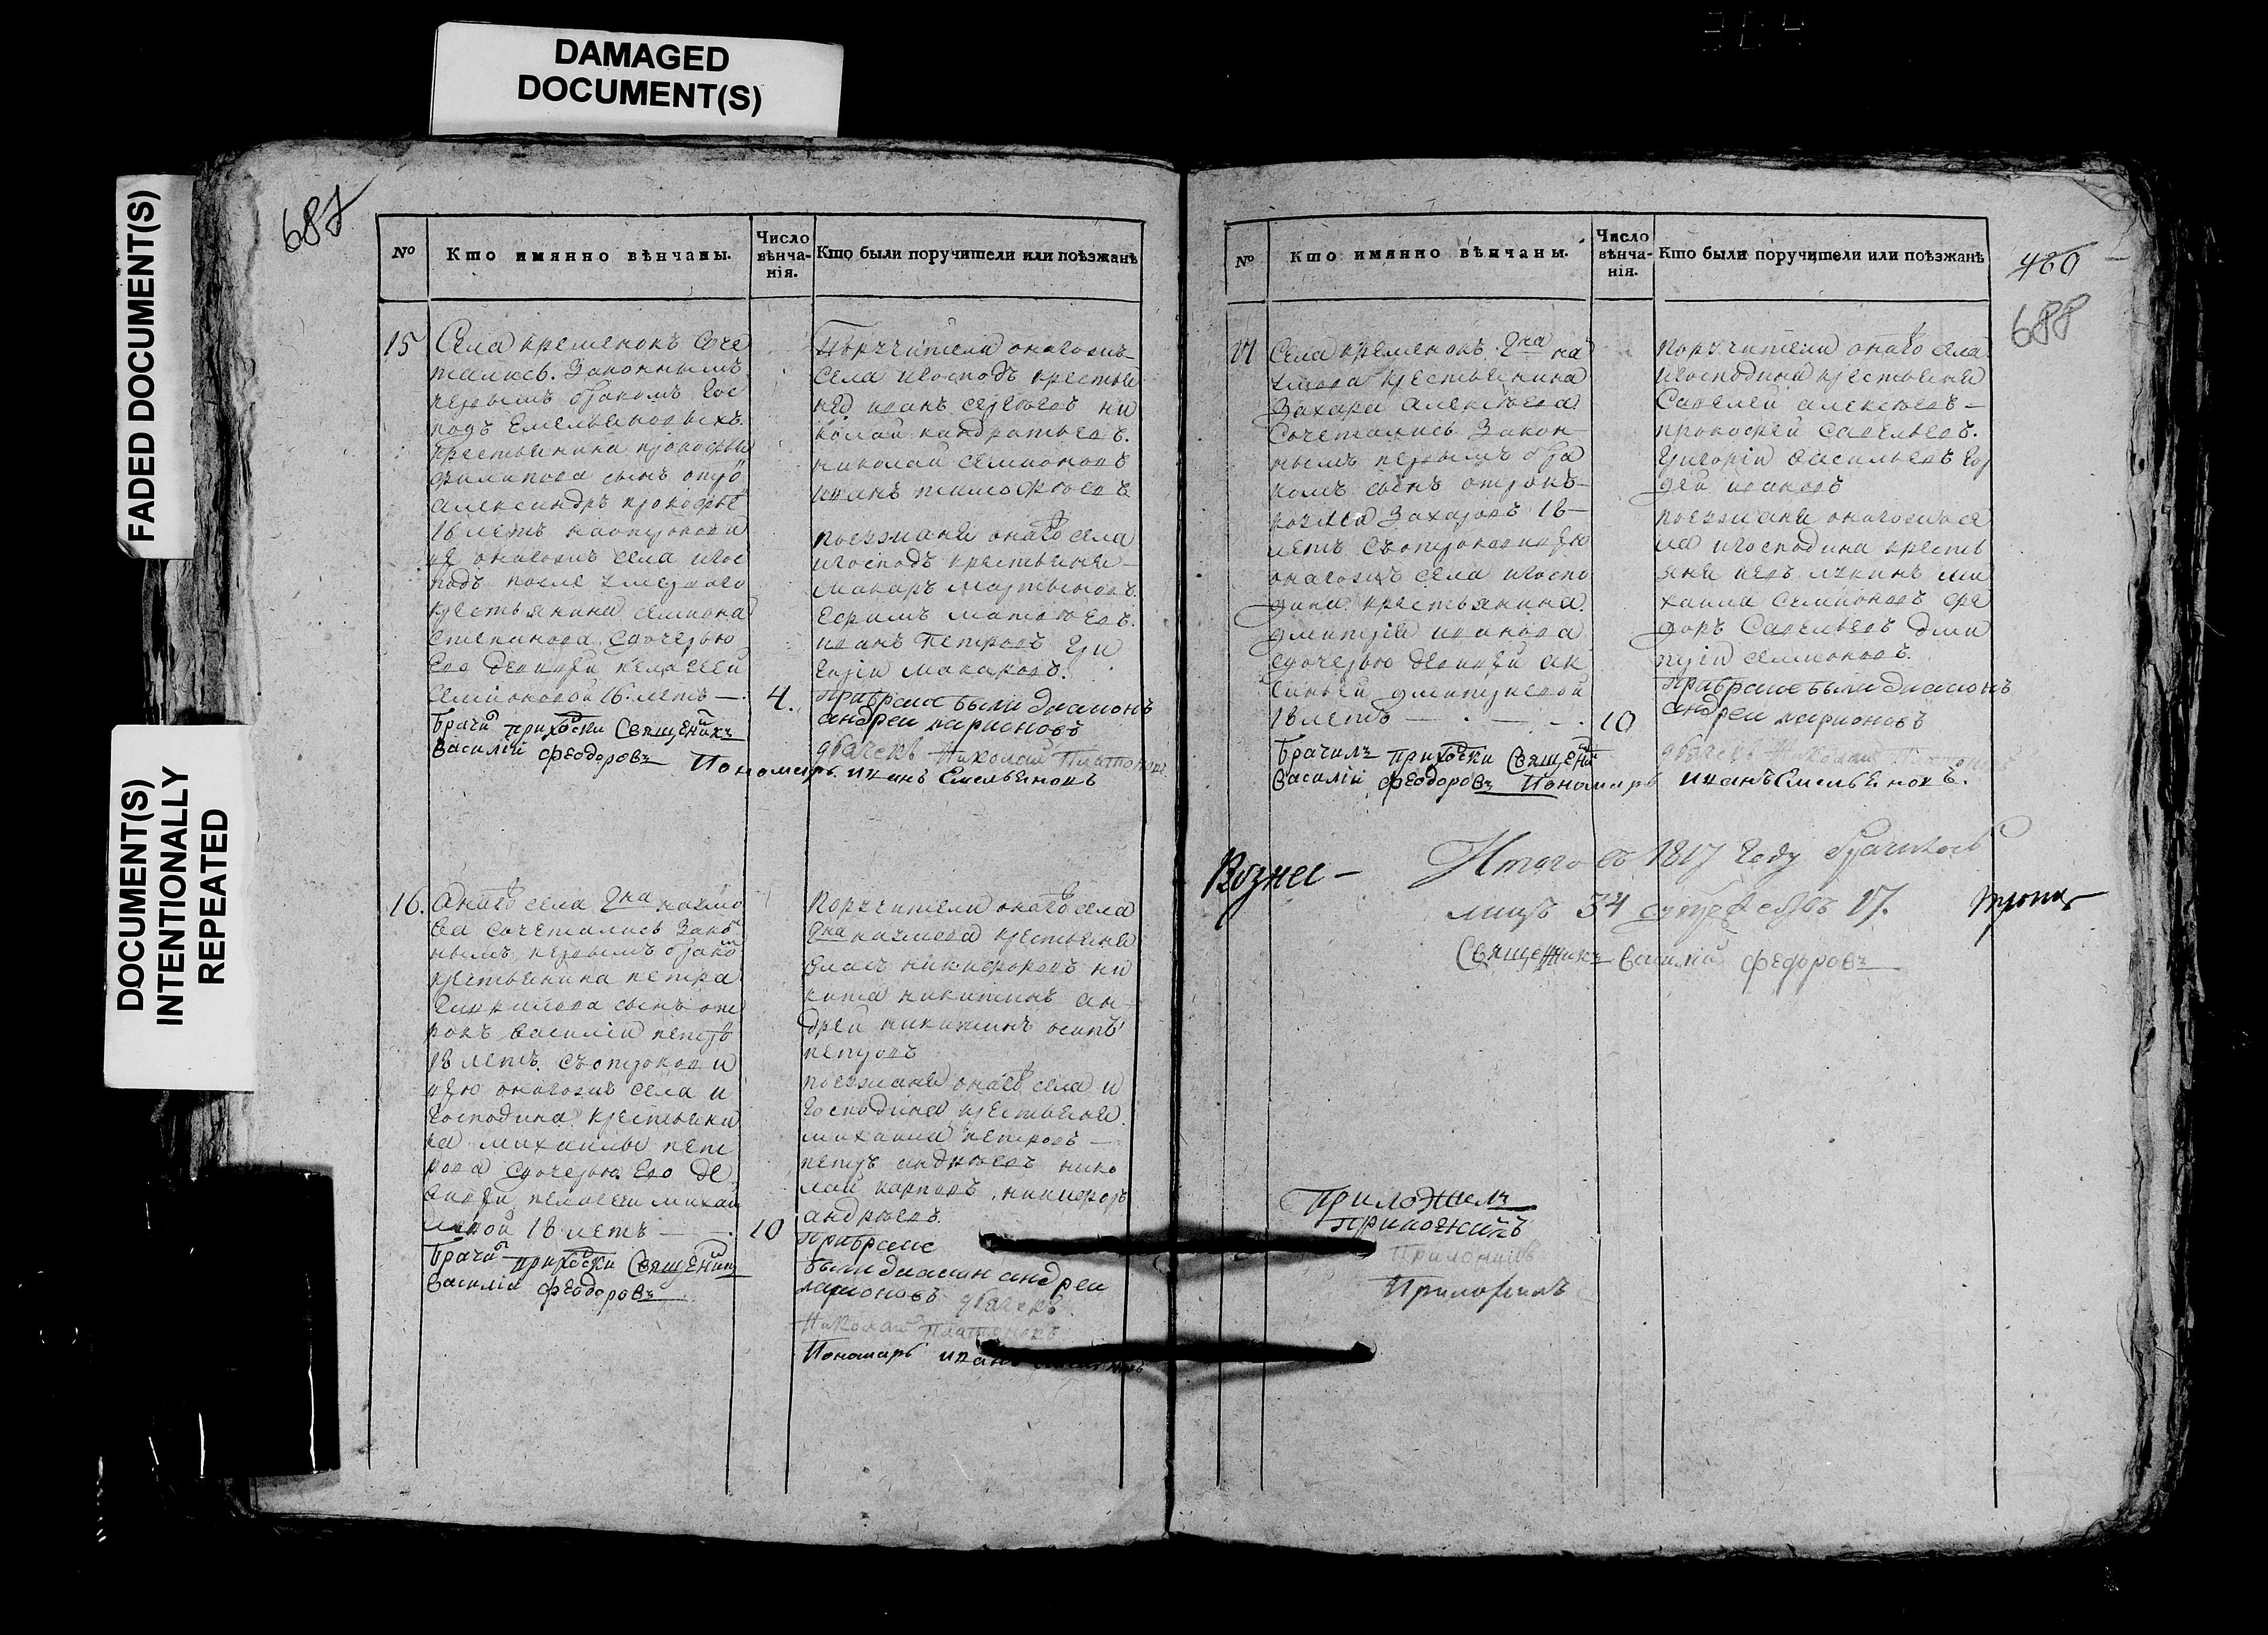 DAMAGED
DOCUMENT(S)
FADED DOCUMENT(S)
DOCUMENT(S)
INTENTIONALLY
REPEATED
687
№
Кто имянно вѣнчаны.
Число вѣнча-нія.
Кто были поручители или поѣзжанѣ
15
Села кременокъ соче
тались законнымъ
первымъ бракомъ гос
подъ Емельяновыхъ
крестьянина прокофья
филипова сынъ отро
александръ прокофье
16 летъ наотрокови
це оногожъ села игос
подъ после умершаго
крестьянина семиона
степанова сдочерью
Ево девицей пелагеей
семионовой 16 летъ —
4.
Брачи прихоцки Священикъ
Василій феодоровъ
Поручители оногожъ
села игосподъ крестья
не иванъ сергеевъ ни
колай кандратьевъ.
николай семионовъ
иванъ тимофеевъ
поезжаня онаго села
игосподъ крестьяне
макаръ мартыновъ
ефимъ матвеевъ.
иванъ петровъ гри
горій макаровъ.
Прибраке были дияконъ
андреи ларионовъ
дьячекъ Николай Платоновъ
Пономарь иванъ Емельяновъ
16.
Онаго села гна
ва сочетались зако
нымъ первымъ брако
крестьянина петра
сынъ от
рокъ василіи петро
18 летъ съотрокови
цею оногожъ села и
господина крестьяни
на михаилы пет
рова сдочерью Ево де
вицеи пелагеи михаи
ловой 18 летъ —
10
Брачи прихоцки Священик
Василіи феодоровъ
Поручители онаго села
гна крестьяне
власъ никифоровъ ни
кита никитинъ ан
дрей никитинъ осипъ
петровъ
поезжаня онаго села и
господина крестьяне
михаила петровъ —
петръ андреевъ нико
лай карповъ никифоръ
андреевъ.
Прибраке
были диакон андреи
ларионовъ дьячекъ
Николай Платоновъ
Пономарь иванъ
460
688
№
Кто имянно вѣнчаны.
Число вѣнча-нія.
Кто были поручители или поѣзжанѣ
17
Села кременокъ гна на
умова крестьянина
Захара алексеева
Сочетались закон
нымъ первымъ бра
комъ сынъ отрокъ
козма Захаровъ 18
летъ съотроковицею
оногожъ села игоспо
дина крестьянина
дмитрія иванова
сдочерью девицей ак
синьей дмитриевой
18 летъ — . — .
10
Брачилъ прихоцки Священи
Василій феодоровъ Пономарь иванъ Емельяновъ.
поручители онаго села
игосподина крестьяня
Савелей алексеевъ —
прокофей савельевъ.
Григорій васильевъ гор
дей ивановъ
поезжаня оногожъ се
ла игосподина кресть
яне левъ лукинъ ми
хаила семионовъ фе
доръ Савельевъ дми
трій семионовъ.
Прибраке были диаконъ
андреи ларионовъ
дьячекъ Николай
Вознес —
Итого въ 1817 году брачилось
лицъ 34 17.
Священникъ василий федоровъ
Приложилъ
Приложилъ
Приложилъ
Приложилъ